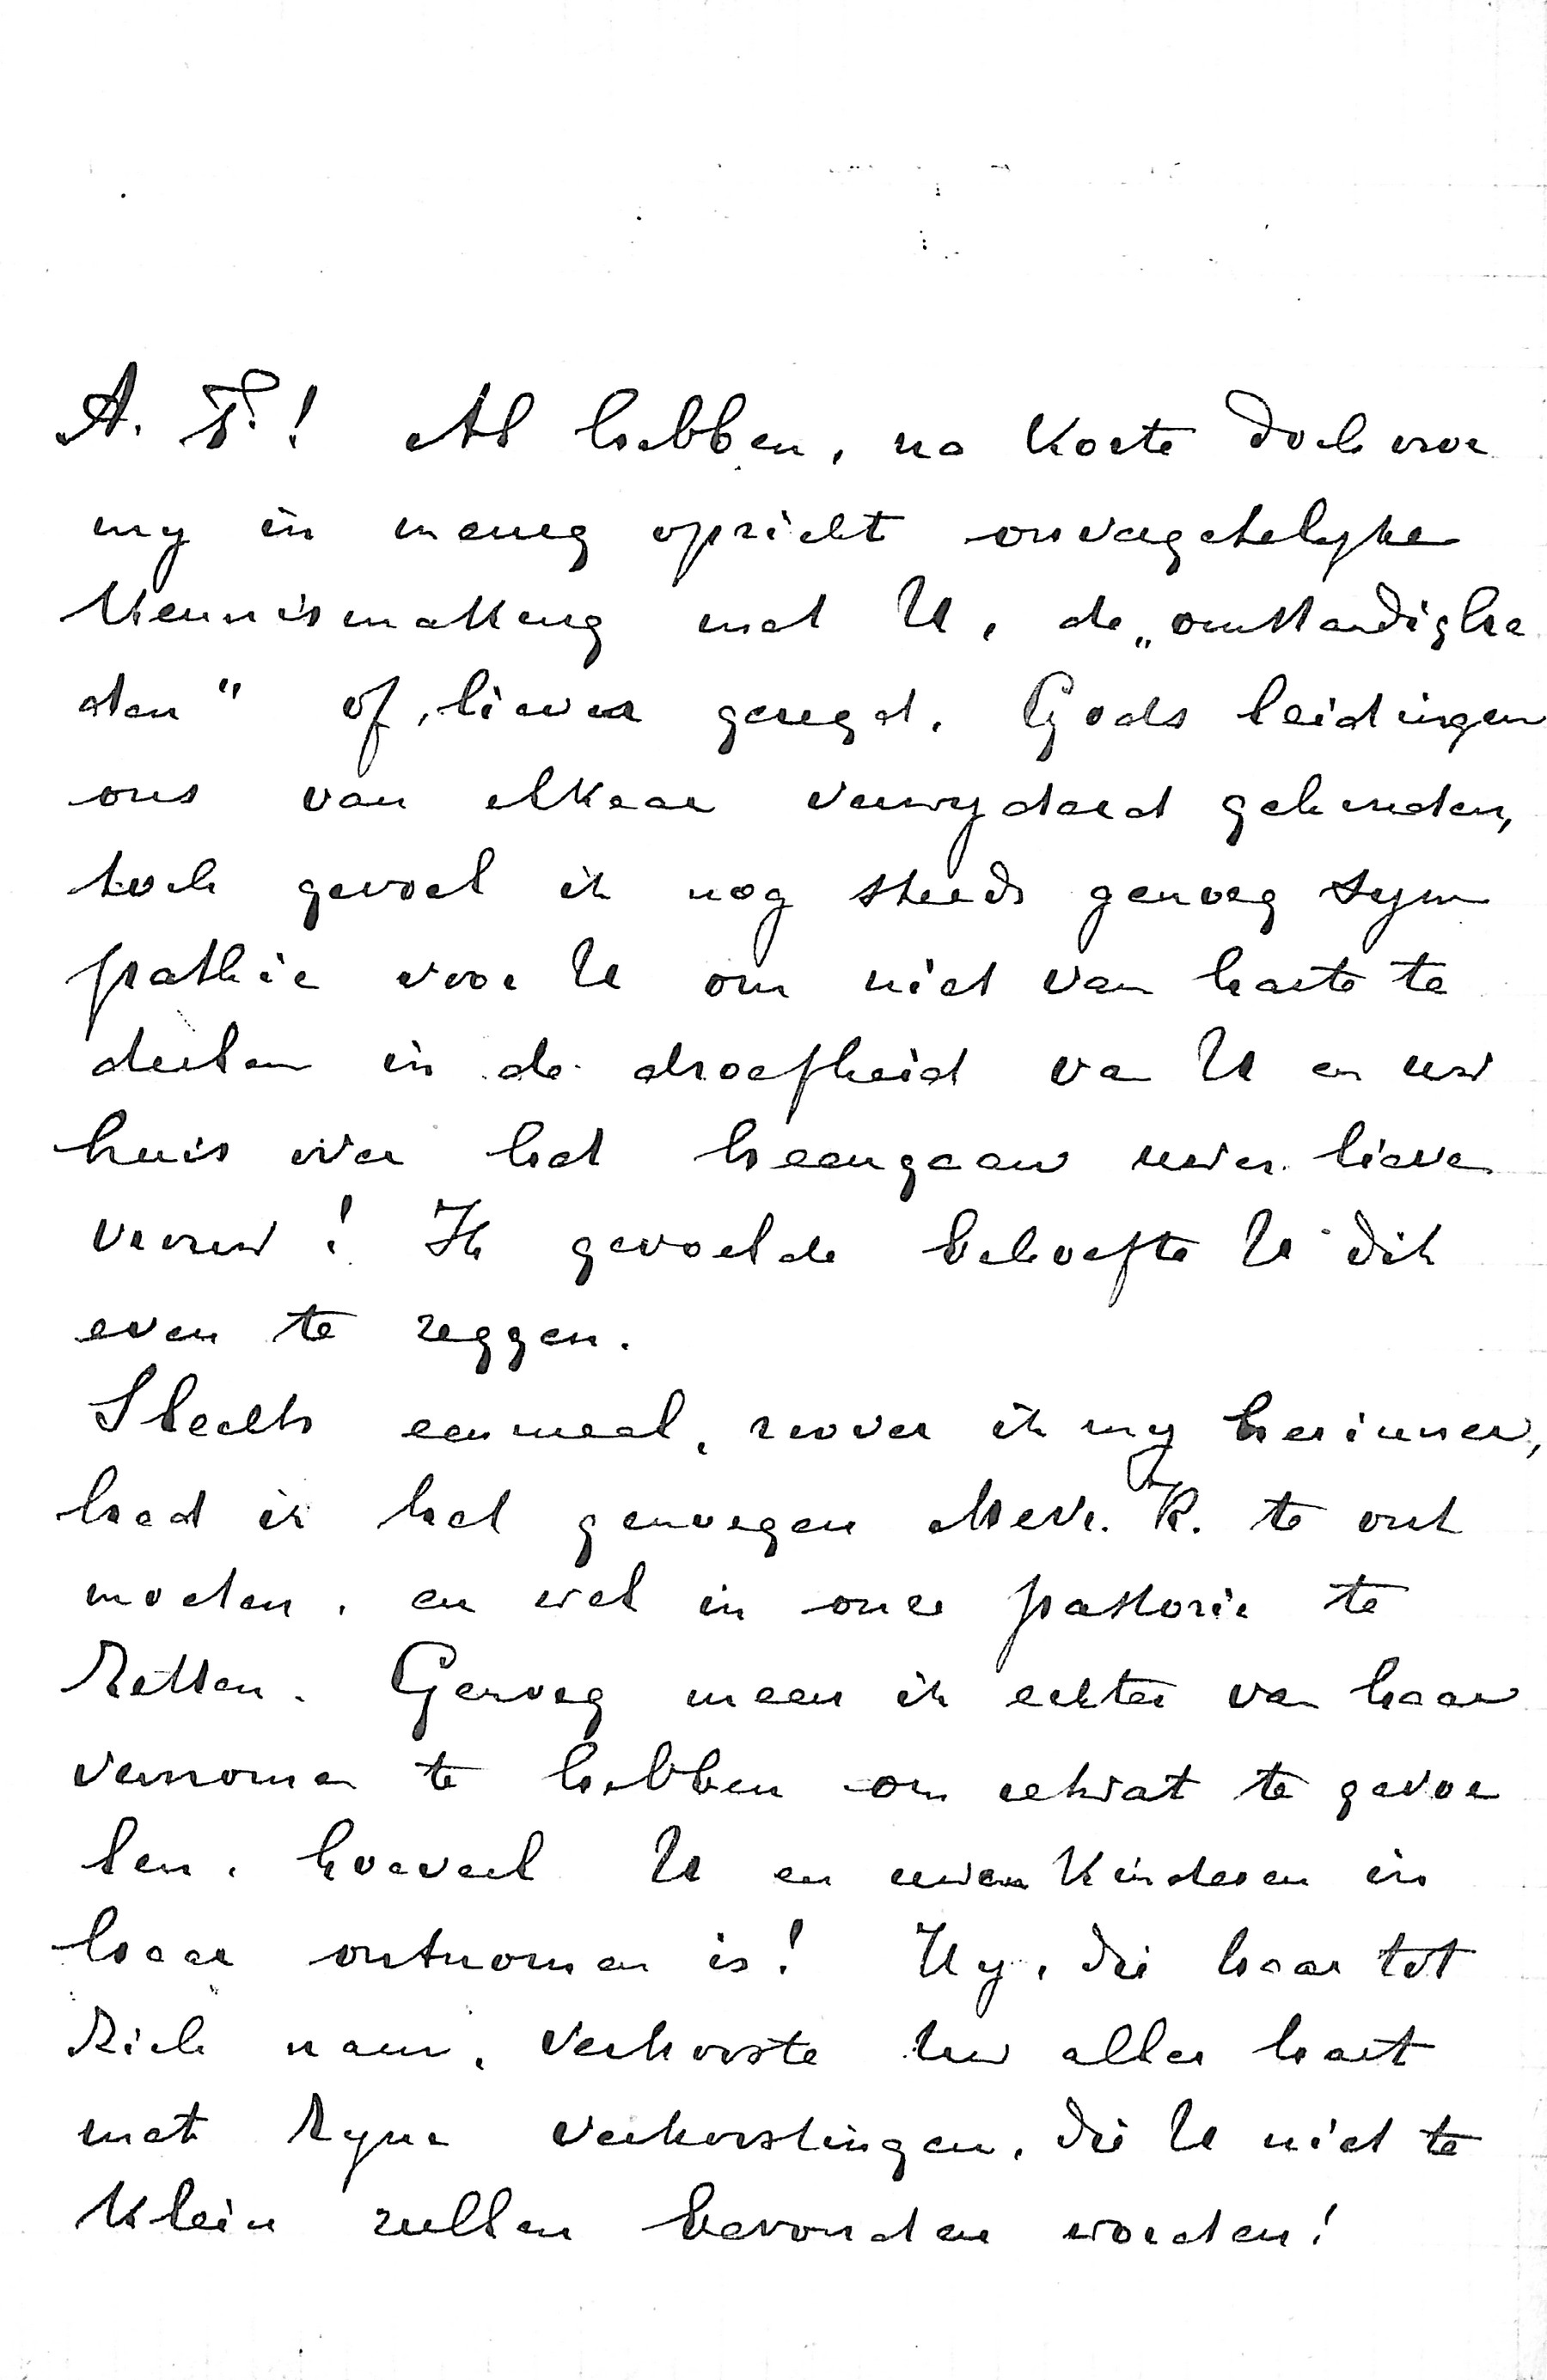 A. F.! Al hebben, na korte doch voor
my in menig opzicht onvergetelyke
kennismaking met U, de „omstandighe
den" of, liever gezegd, Gods leidingen
ons van elkaar verwyderd gehouden,
toch gevoel ik nog steeds genoeg sym
pathie voor U om niet van harte te
deelen in de droefheid van U en uw
huis over het heengaan uwer lieve
vrouw! Ik gevoelde behoefte U dit
even te zeggen.
Slechts eenmaal, zoover ik my herinner,
had ik het genoegen Mevr. K. te ont
moeten, en wel in onze pastorie te
Zetten. Genoeg meen ik echter van haar
vernomen te hebben om eenigszins te gevoe
len, hoeveel U en uwen kinderen in
haar ontnomen is! Hy, die haar tot
Zich nam, vertrooste Uw aller hart
met Zyne vertroostingen, die U niet te
klein zullen bevonden worden!